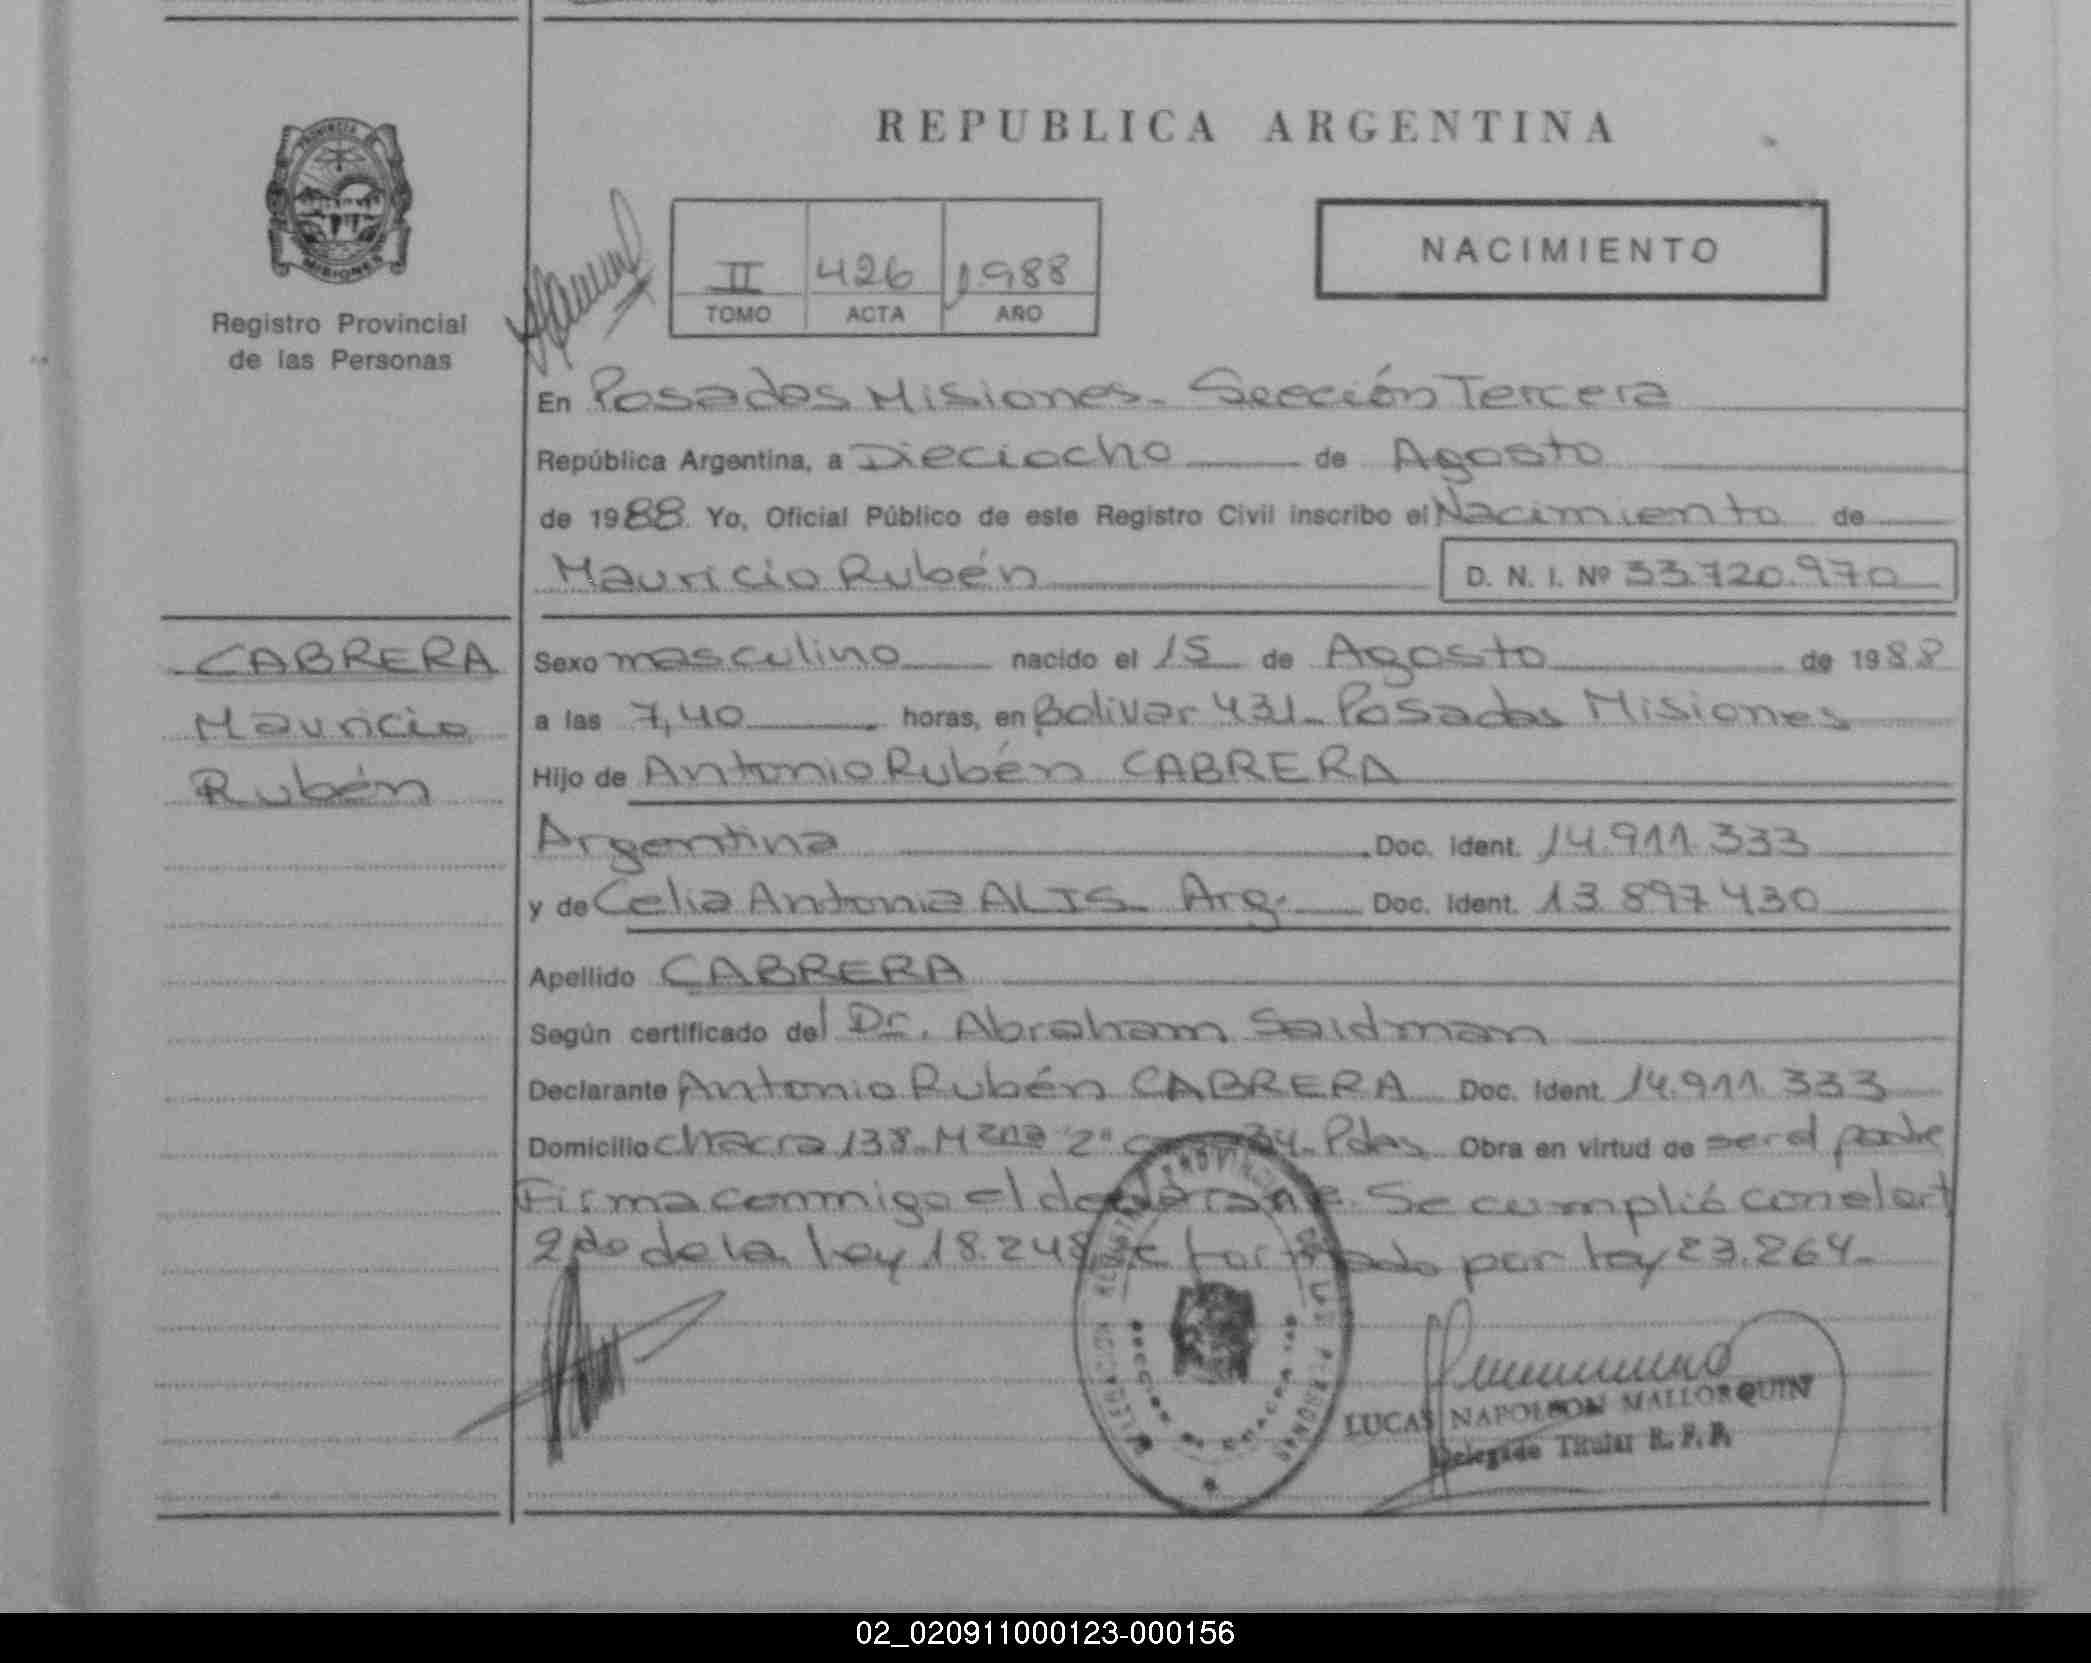 REPUBLICA ARGENTINA
PROVINCIA
MISIONES
Registro Provincial
de las Personas
II 426 1.988
TOMO ACTA AÑO
NACIMIENTO
En Posadas Misiones - Sección Tercera
República Argentina, a Dieciocho de Agosto
de 1988. Yo, Oficial Público de este Registro Civil inscribo el Nacimiento de
Mauricio Rubén D. N. I. Nº 33.720.970
CABRERA
Mauricio
Rubén
Sexo masculino nacido el 15 de Agosto de 1988
a las 7,40 horas, en Bolivar 431- Posadas Misiones
Hijo de Antonio Rubén CABRERA
Argentina Doc. Ident. 14.911.333
y de Celia Antonia ALIS - Arg. Doc. Ident. 13.897.430
Apellido CABRERA
Según certificado del Dr. Abraham Saidman
Declarante Antonio Rubén CABRERA Doc. Ident. 14.911.333
Domicilio chacra 138- Mzna "2" 34- Pdas Obra en virtud de ser el padre
Firma conmigo el declarante. Se cumplió con el art
2do de la ley 18.248 por ley 23.264-
LUCAS NAPOLEON MALLORQUIN
Delegado Titular R. P. P.
02_020911000123-000156